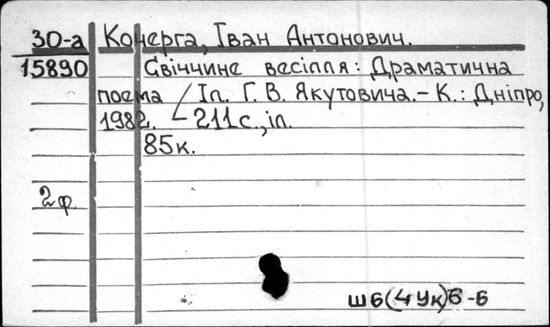 30-а Кочерга, Іван Антонович.
15890 Свіччине весілля: Драматична
поема / Іл. Г. В. Якутовича. – К.: Дніпро,
1982. – 211с., іл.
85к.
2ф.
Ш6(4Ук)6-6